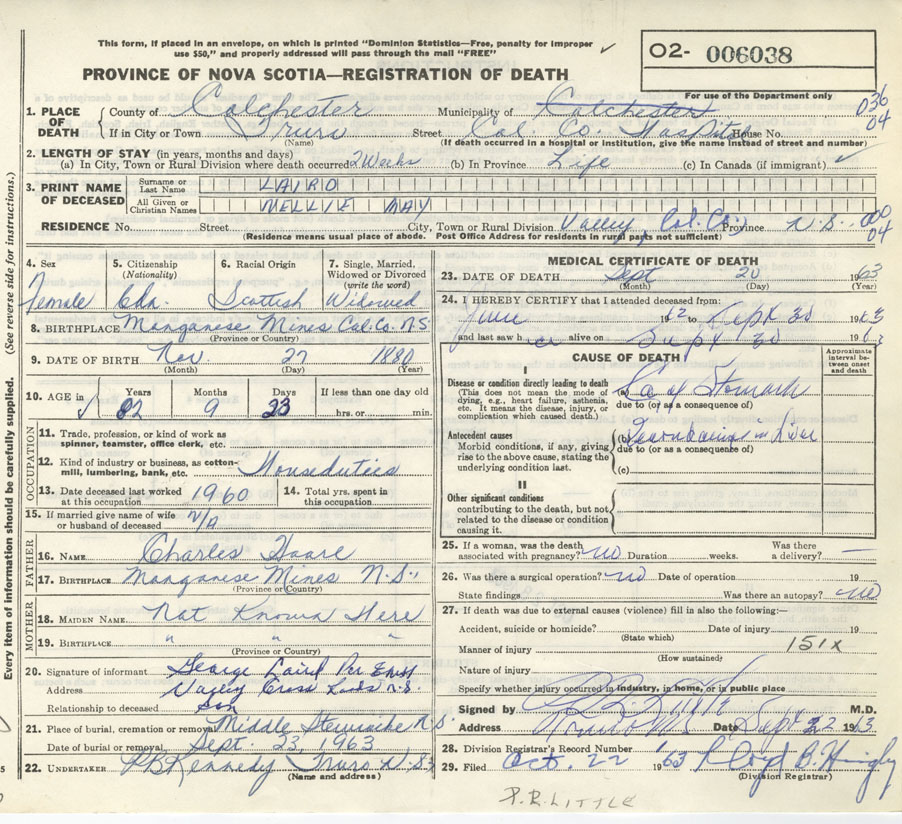 This form, if placed in an envelope, on which is printed "Dominion Statistics—Free, penalty for improper
use $50," and properly addressed will pass through the mail "FREE"
O2- 006038
PROVINCE OF NOVA SCOTIA—REGISTRATION OF DEATH
For use of the Department only
1. PLACE OF DEATH County of Colchester Municipality of Colchester 036
04
If in City or Town Truro Street Col. Co. Hospital House No.
(Name) (If death occurred in a hospital or institution, give the name instead of street and number)
2. LENGTH OF STAY (in years, months and days)
(a) In City, Town or Rural Division where death occurred 2 Weeks (b) In Province Life (c) In Canada (if immigrant)
3. PRINT NAME OF DECEASED Surname or Last Name LAIRD
All Given or Christian Names NELLIE MAY
RESIDENCE No. Street City, Town or Rural Division Valley, Col. Co., Province N.S. 000
04
(Residence means usual place of abode. Post Office Address for residents in rural parts not sufficient)
4. Sex 5. Citizenship (Nationality) 6. Racial Origin 7. Single, Married, Widowed or Divorced (write the word)
Female Cdn. Scottish Widowed
8. BIRTHPLACE Manganese Mines Col. Co. N.S.
(Province or Country)
9. DATE OF BIRTH Nov. 27 1880
(Month) (Day) (Year)
10. AGE in Years Months Days If less than one day old
82 9 23 hrs. or min.
OCCUPATION
11. Trade, profession, or kind of work as spinner, teamster, office clerk, etc.
12. Kind of industry or business, as cotton-mill, lumbering, bank, etc. Houseduties
13. Date deceased last worked at this occupation 1960 14. Total yrs. spent in this occupation
15. If married give name of wife or husband of deceased N/A
FATHER
16. NAME Charles Hoare
17. BIRTHPLACE Manganese Mines N.S.
(Province or Country)
MOTHER
18. MAIDEN NAME Not Known Here
19. BIRTHPLACE " " "
(Province or Country)
20. Signature of informant George Laird Per
Address Valley Cross Roads N.S.
Relationship to deceased Son
21. Place of burial, cremation or removal Middle Stewiacke N.S.
Date of burial or removal Sept. 23, 1963
22. UNDERTAKER P B Kennedy Truro N.S.
(Name and address)
MEDICAL CERTIFICATE OF DEATH
23. DATE OF DEATH Sept 20 1963
(Month) (Day) (Year)
24. I HEREBY CERTIFY that I attended deceased from:
June 19 62 to Sept 20 1963
and last saw h er alive on Sept 20 1963
CAUSE OF DEATH
Approximate interval between onset and death
I
Disease or condition directly leading to death
(This does not mean the mode of dying, e.g., heart failure, asthenia, etc. It means the disease, injury, or complication which caused death.)
(a) Ca of Stomach
due to (or as a consequence of)
Antecedent causes
Morbid conditions, if any, giving rise to the above cause, stating the underlying condition last.
(b)
due to (or as a consequence of)
(c)
II
Other significant conditions
contributing to the death, but not related to the disease or condition causing it.
25. If a woman, was the death associated with pregnancy? no Duration weeks. Was there a delivery? —
26. Was there a surgical operation? no Date of operation 19
State findings Was there an autopsy? no
27. If death was due to external causes (violence) fill in also the following:—
Accident, suicide or homicide? Date of injury 19
(State which)
Manner of injury 151X
(How sustained)
Nature of injury
Specify whether injury occurred in industry, in home, or in public place
Signed by M.D.
Address Truro N.S. Date Sept 22 1963
28. Division Registrar's Record Number
29. Filed Oct. 22 1963 Lloyd B.
(Division Registrar)
P.R. LITTLE
(See reverse side for instructions.)
Every item of information should be carefully supplied.